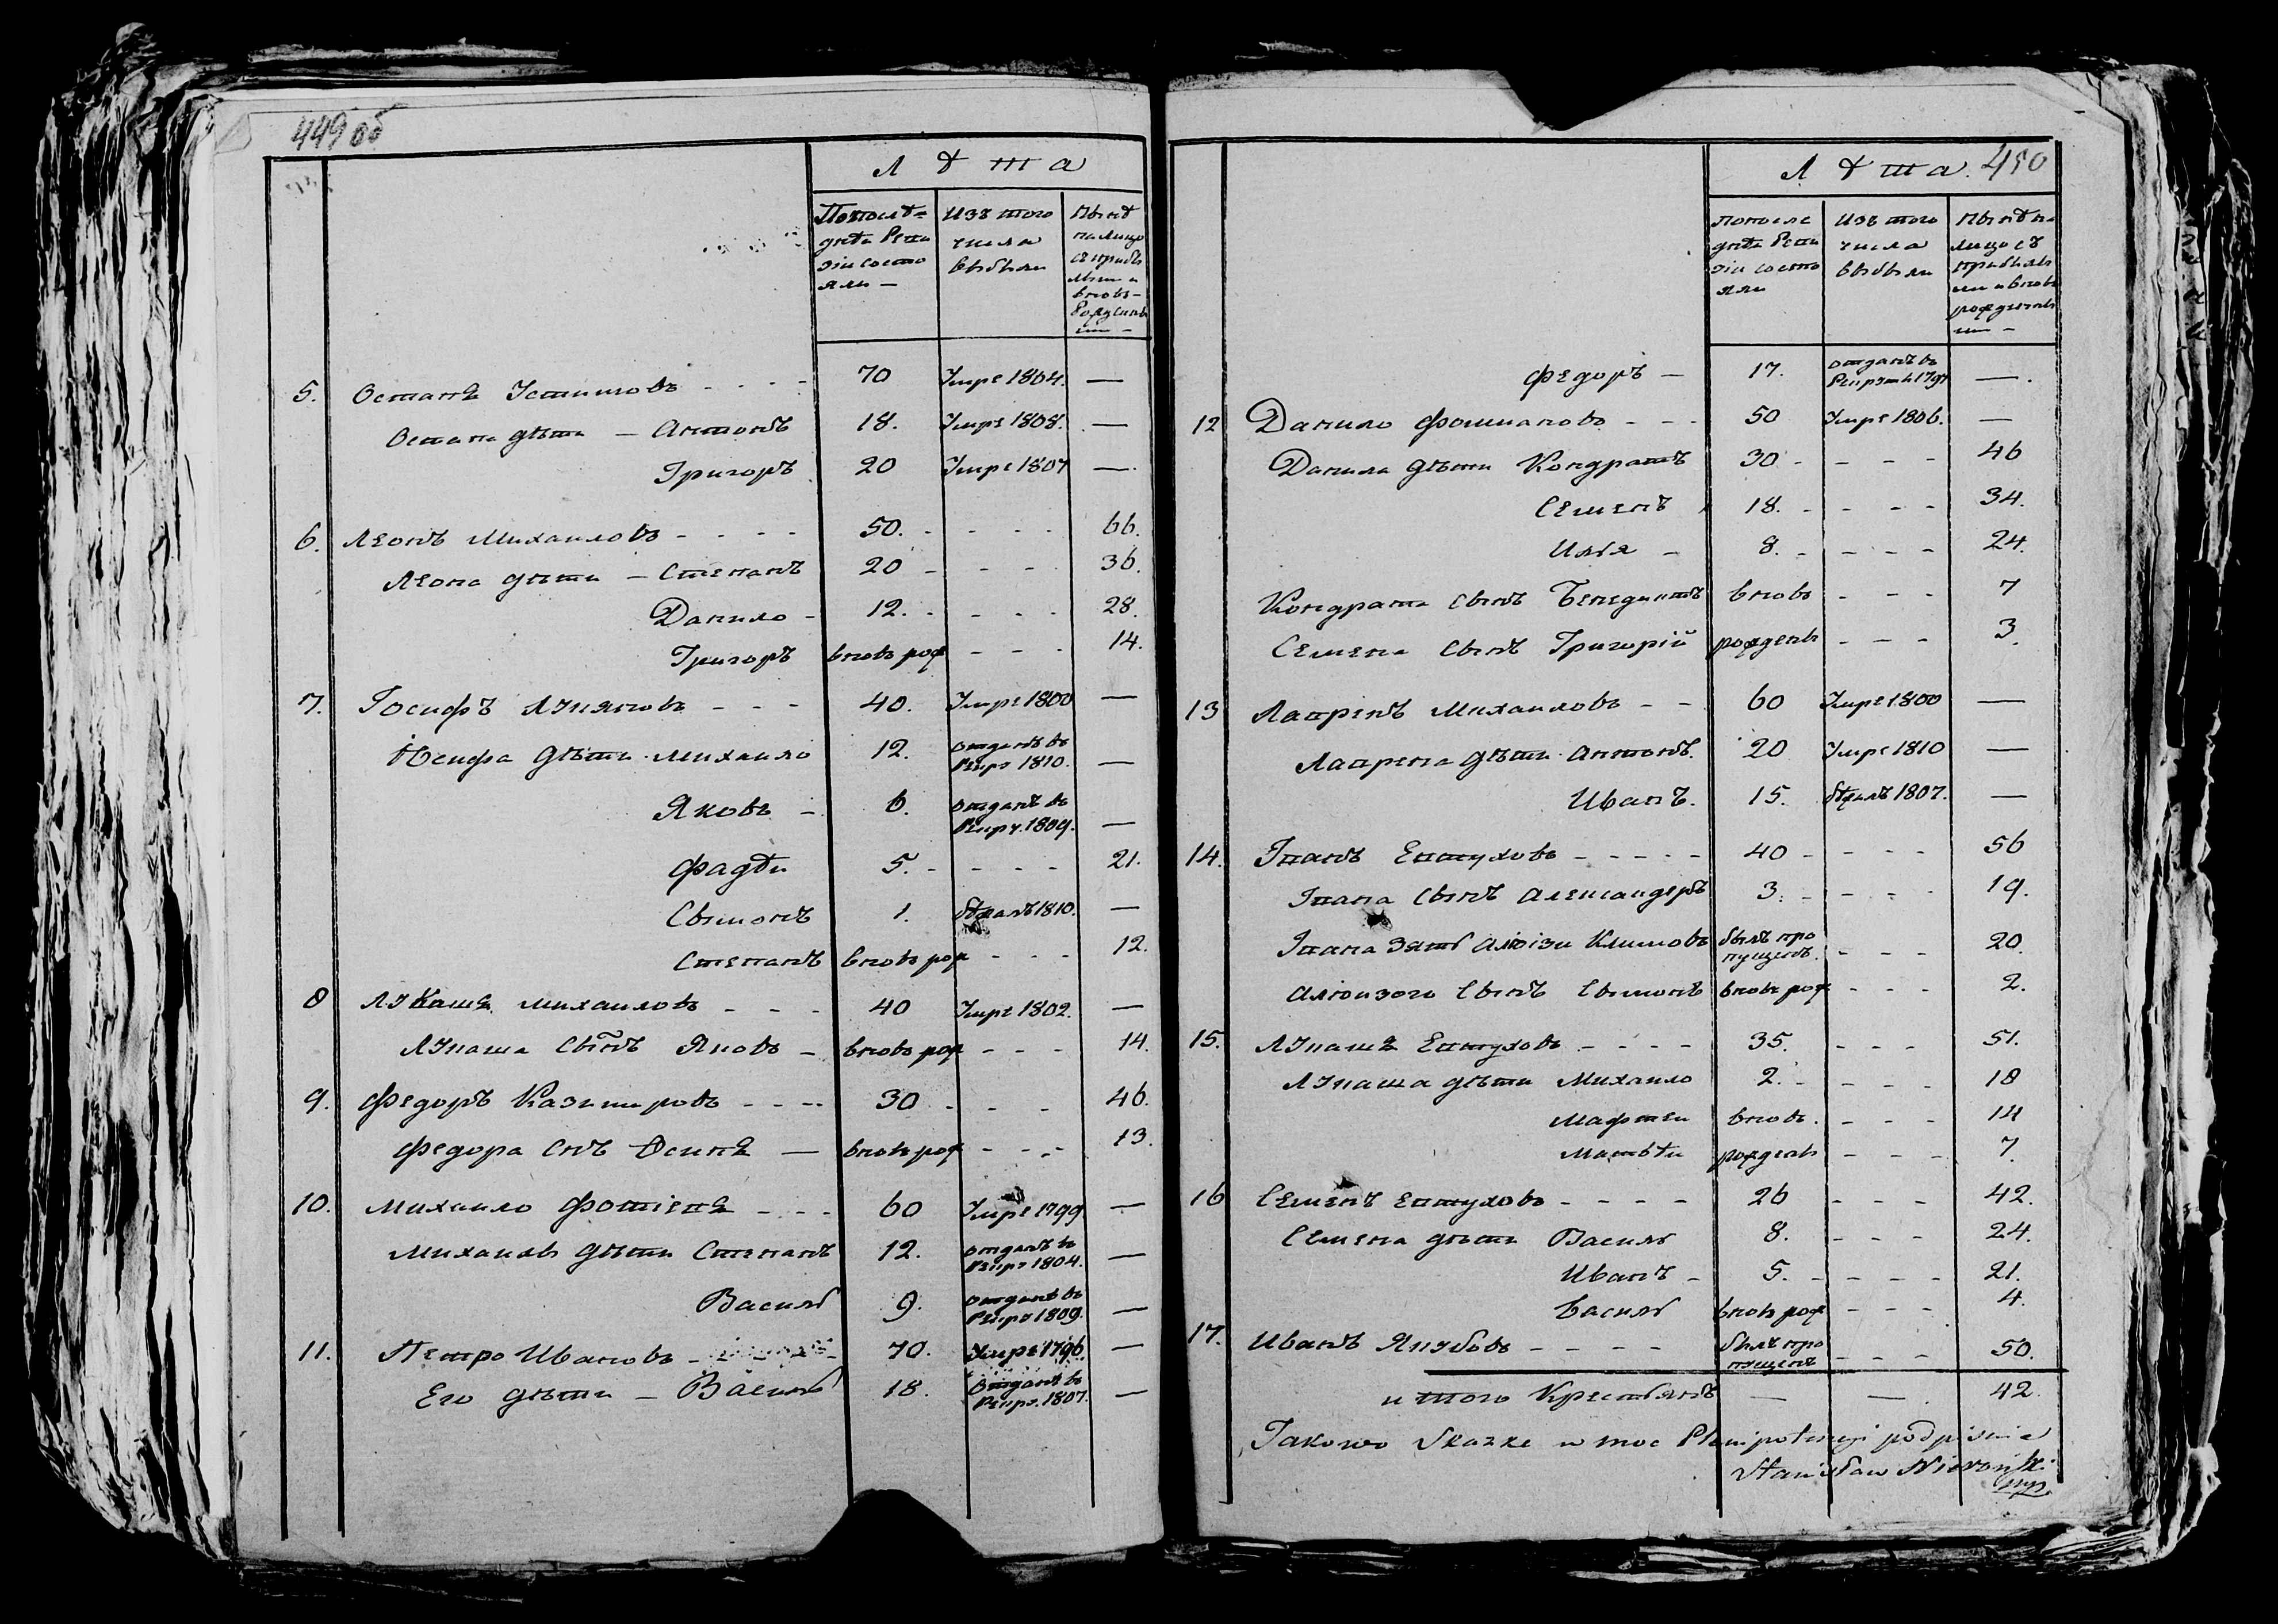 449 об
Л ѣ т а
По послѣ= Изъ того Нынѣ
дней Реви числа на лицо
зіи состо выбыли съ прибы
яли — лыми и
вновь=
рожденны
ми —
5. Остапъ Устиновъ - - - - 70 Умре 1804. —
Остапа дѣти — Антонъ 18. Умре 1808. —
Григоръ 20 Умре 1807 —
6. Леонъ Михаиловъ - - - - 50. - - - - 66.
Леона дѣти — Степанъ 20 - - - - 36.
Данило - 12. - - - - 28.
Григоръ вновь рож - - - 14.
7. Іосифъ Лукяновъ - - - 40. Умре 1800 —
Іосифа дѣти Михаило 12. отданъ въ
Рекру 1810. —
Яковъ - 6. отданъ въ
Рекру. 1809. —
Фадѣи 5. - - - - 21.
Сымонъ 1. бѣжалъ 1810. —
Степанъ вновь рож - - - 12.
8 Лукашъ Михаиловъ - - - 40 Умре 1802. —
Лукаша сынъ Яковъ - вновь рож - - - 14.
9. Федоръ Казимировъ - - - - 30 - - - 46.
Федора снъ Осипъ — вновь рож - - - 13.
10. Михаило Фотіевъ - - - 60 Умре 1799 —
Михаила дѣти Степанъ 12. отданъ въ
Рекру 1804. —
Василь 9. отданъ въ
Рекру 1809. —
11. Петро Ивановъ - 70. Умре 1796 —
Его дѣти — Василь 18. Отданъ въ
Рекру. 1807. —
Л ѣ т а. 450
По после Изъ того Нынѣ на
дней Реви числа лицо съ
зіи состо выбыли прибылы
яли ми и вновь
рожденны
ми —
Федоръ — 17. отданъ въ
Рекруты 1797 —.
12 Данило Фомиановъ - - - 50 Умре 1806. —
Данила дѣти Кондратъ 30 - - - - 46
Семенъ 18. - - - - 34.
Илья - 8. - - - - 24.
Кондрата сынъ Бенедиктъ вновь - - - 7
Семена сынъ Григорій рожденъ - - - 3.
13 Лавренъ Михаиловъ - - 60 Умре 1800 —
Лаврена дѣти Антонъ. 20 Умре 1810 —
Иванъ. 15. бѣжалъ 1807. —
14. Іванъ Евтуховъ - - - - - 40 - - - - 56
Івана сынъ Александеръ 3. - - - - 19.
Івана зять Алюізи Климовъ былъ про
пущенъ. - - - 20.
Алюизого сынъ Сымонъ вновь рож - - - 2.
15. Лукашъ Евтуховъ - - - - 35. - - - 51.
Лукаша дѣти Михаило 2. - - - - 18
Мафтеи вновь. - - - 14
Матвѣи рожденъ - - - 7.
16 Семенъ Евтуховъ - - - - 26 - - - 42.
Семена дѣти Василь 8. - - - 24.
Иванъ - 5. - - - - 21.
Василь вновь рож - - - 4.
17. Иванъ Якубовъ - - - - былъ про
пущенъ - - - 50.
и того Крестьянъ — — . 42.
Jakowo Skazkę w moc Plenipotencji podpisuie
Stanisław